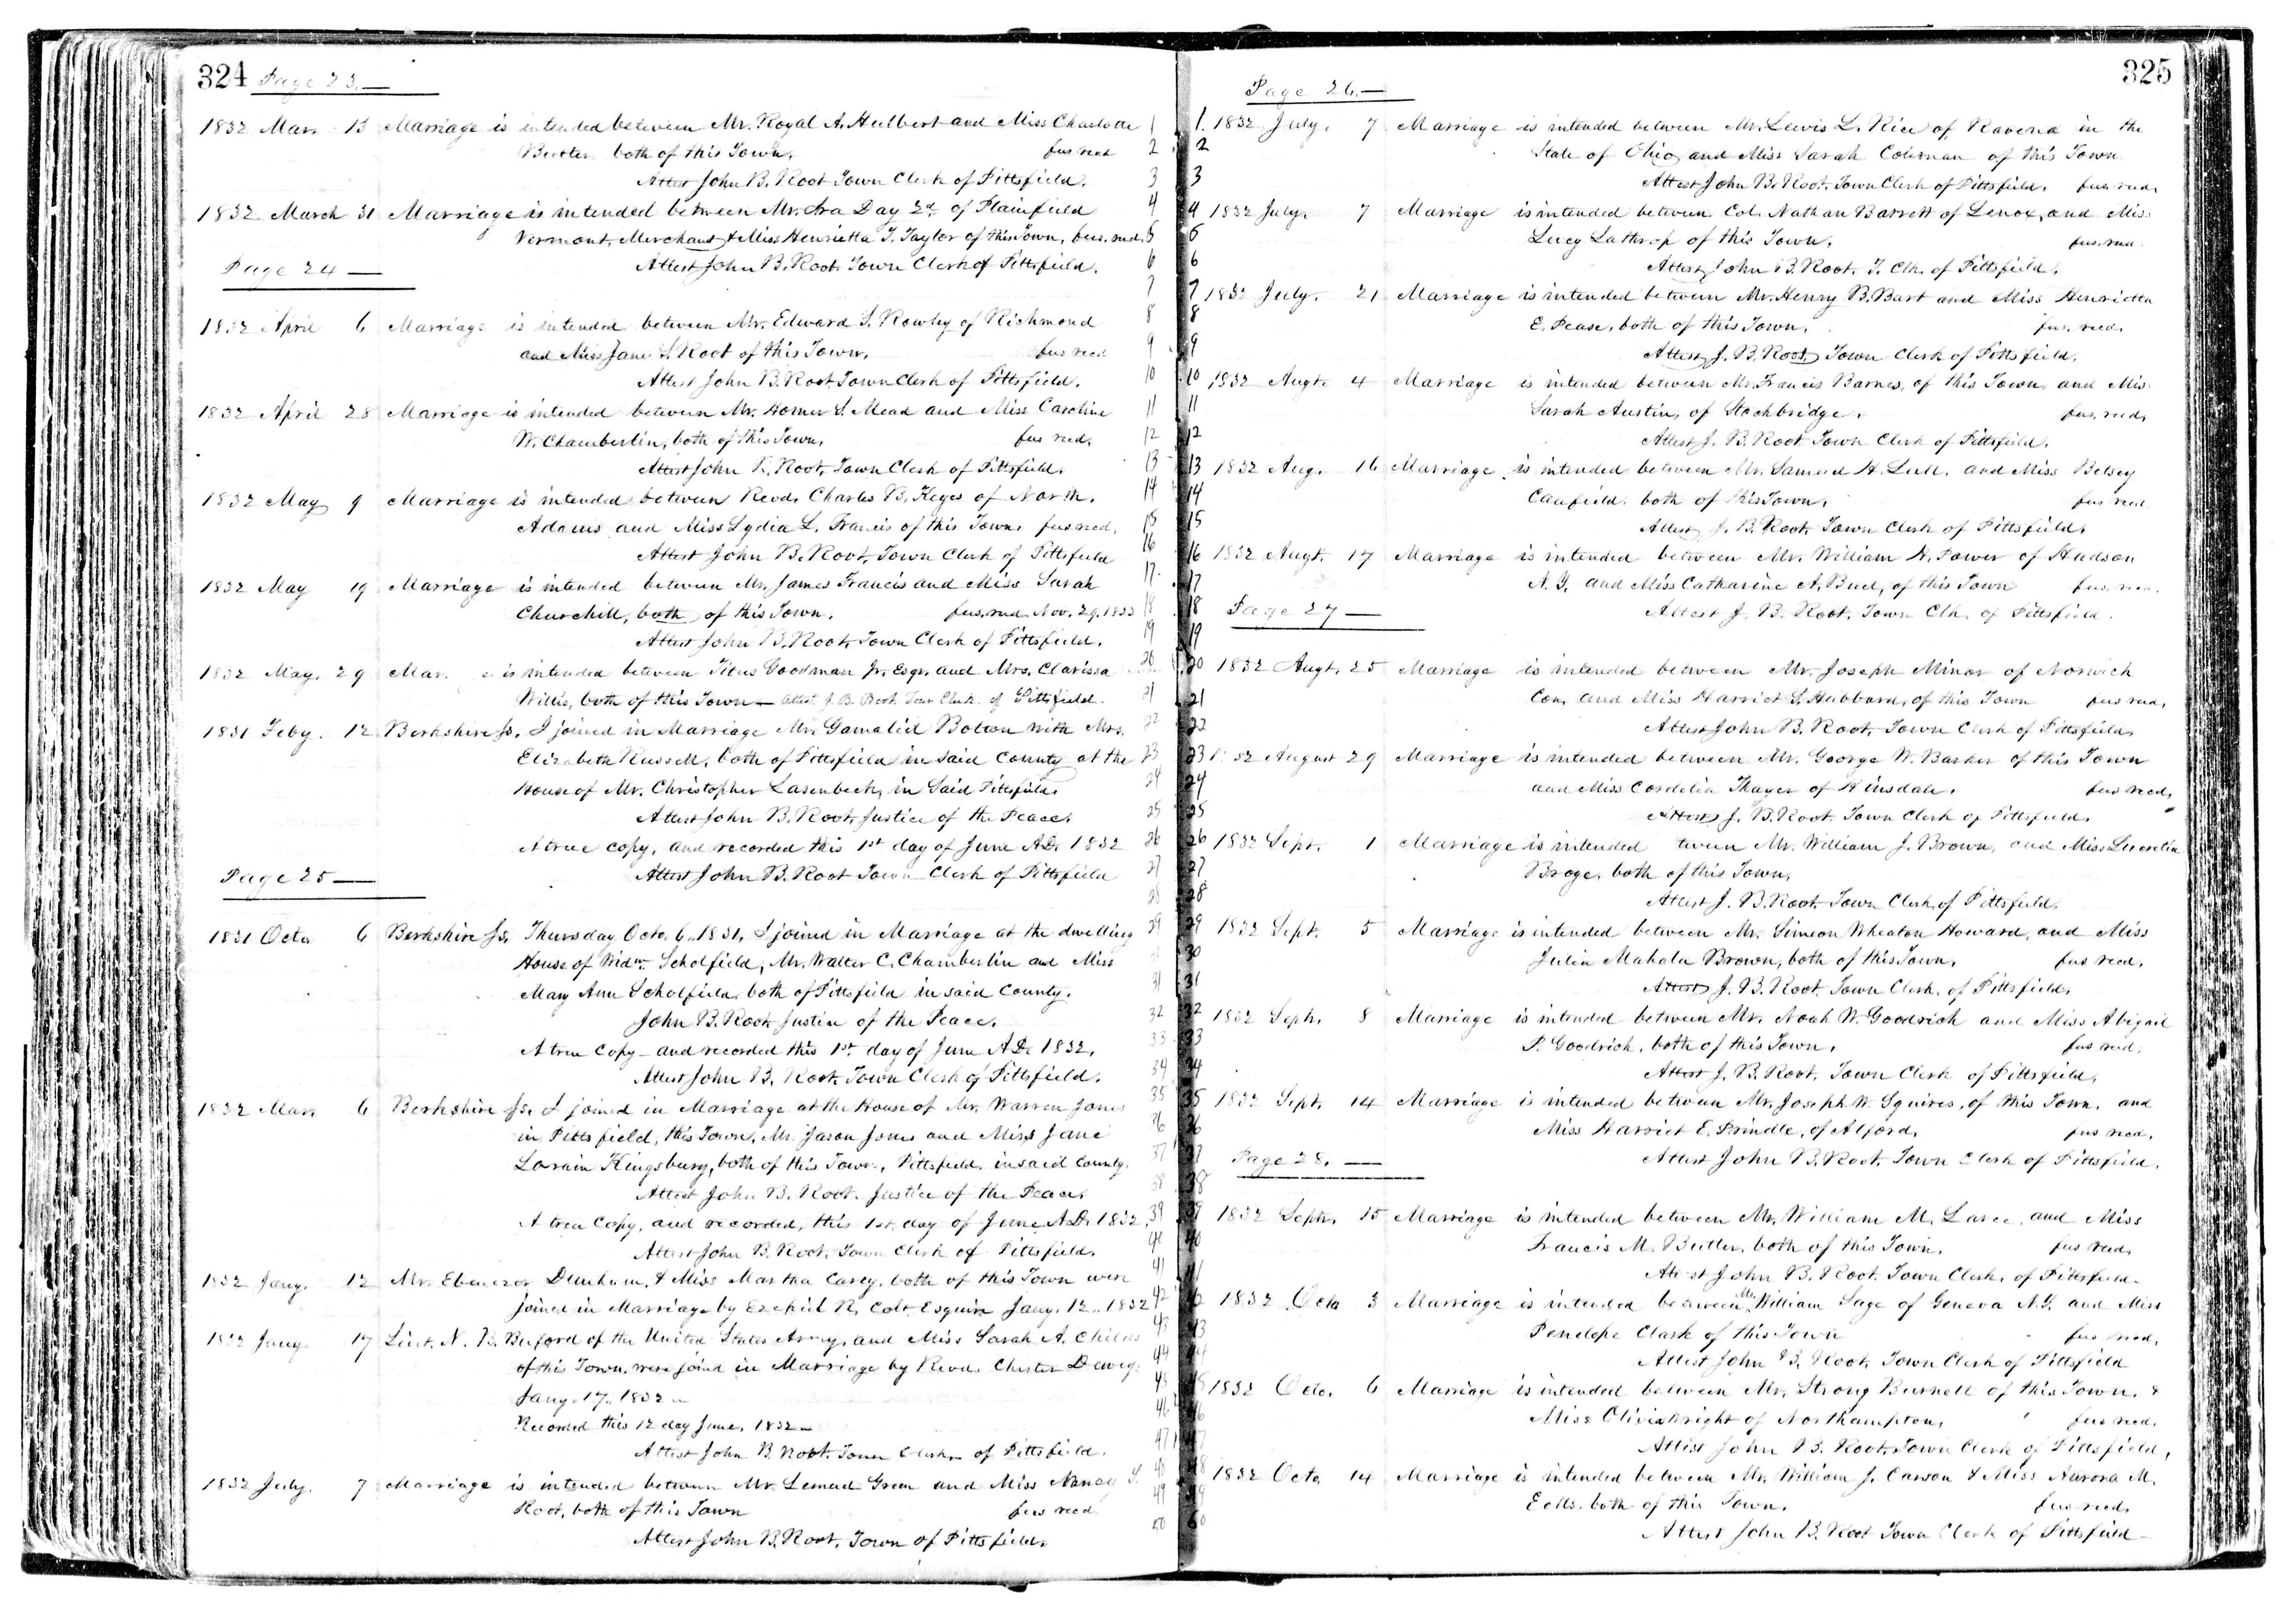 324 Page 23.—
1832 Mar. 13 Marriage is intended between Mr. Royal A. Hulbert and Miss Charlotte 1
Butler both of this Town. fus recd 2
Attest John B. Root Town Clerk of Pittsfield. 3
1832 March 31 Marriage is intended between Mr. Ira Day 2d. of Plainfield 4
Vermont, Merchant & Miss Henrietta T. Taylor of this Town, fus. recd. 5
Page 24— Attest John B. Root Town Clerk of Pittsfield. 6
7
1832 April 6 Marriage is intended between Mr. Edward S. Rowley of Richmond 8
and Miss Jane S. Root of this Town. fus recd 9
Attest John B. Root Town Clerk of Pittsfield. 10
1832 April 28 Marriage is intended between Mr. Homer S. Mead and Miss Caroline 11
W. Chamberlin, both of this Town. fus recd. 12
Attest John B. Root, Town Clerk of Pittsfield. 13
1832 May 9 Marriage is intended between Revd. Charles B. Keyes of North. 14
Adams and Miss Lydia L. Francis of this Town. fus recd. 15
Attest John B. Root, Town Clerk of Pittsfield 16
1832 May 19 Marriage is intended between Mr. James Francis and Miss Sarah 17
Churchill, both of this Town. fus. recd. Nov. 29. 1833 18
Attest John B. Root, Town Clerk of Pittsfield. 19
1832 May. 29 Mar. is intended between Titus Goodman Jr. Esqr. and Mrs. Clarissa 20
Willis, both of this Town — Attest J. B. Root Town Clerk of Pittsfield. 21
1831 Feby. 12 Berkshire Ss. I joined in Marriage Mr. Gamaliel Bolton with Mrs. 22
Elizabeth Russell, both of Pittsfield in said County at the 23
House of Mr. Christopher Lasenbeck, in Said Pittsfield. 24
Attest John B. Root, Justice of the Peace. 25
A true copy, and recorded this 1st day of June A.D. 1832 26
Page 25— Attest John B. Root Town Clerk of Pittsfield 27
28
1831 Octo. 6 Berkshire Ss. Thursday Octo. 6. 1831. I joined in Marriage at the dwelling 29
House of Widw. Scholfield, Mr. Walter C. Chamberlin and Miss
Mary Ann Scholfield, both of Pittsfield in said County. 31
John B. Root Justice of the Peace. 32
A true Copy — and recorded this 1st. day of June A.D. 1832. 33
Attest John B. Root, Town Clerk of Pittsfield. 34
1832 Mar. 6 Berkshire Ss. I joined in Marriage at the House of Mr. Warren Jones 35
in Pittsfield, this Town, Mr. Jason Jones and Miss Jane 36
Lorain Kingsbury, both of this Town, Pittsfield, in said County. 37
Attest John B. Root. Justice of the Peace. 38
A true Copy, and recorded, this 1st. day of June A.D. 1832. 39
Attest John B. Root. Town Clerk of Pittsfield. 40
1832 Jany. 12 Mr. Ebenezer Dunham, & Miss Martha Carey, both of this Town were 41
joined in Marriage by Ezekiel R. Colt Esquire Jany. 12. 1832 42
1832 Jany. 17 Lieut. N. B. Buford of the United States Army, and Miss Sarah A. Childs 43
of this Town, were joind in Marriage by Revd. Chester Dewey 44
Jany. 17. 1832 — 45
Recorded this 12 day June. 1832 — 46
Attest John B Root. Town Clerk of Pittsfield. 47
1832 July. 7 Marriage is intended between Mr. Lemuel Green and Miss Nancy T. 48
Root, both of this Town fus recd. 49
Attest John B. Root, Town of Pittsfield. 50
Page 26.— 325
1. 1832 July. 7 Marriage is intended between Mr. Lewis L. Rice of Ravena in the
2 State of Ohio, and Miss Sarah Coleman of this Town.
3 Attest John B. Root, Town Clerk of Pittsfield. fus recd.
4 1832 July. 7 Marriage is intended between Col. Nathan Barrett of Lenox, and Mis.
5 Lucy Lathrop of this Town. fus. recd.
6 Attest, John B. Root. T. Clk. of Pittsfield.
7 1832 July. 21 Marriage is intended between Mr. Henry B. Bart and Miss Henrietta
8 E. Pease, both of this Town. fus. recd.
9 Attest, J. B. Root, Town Clerk of Pittsfield.
10 1832 Augt. 4 Marriage is intended between Mr. Francis Barnes, of this Town, and Mis.
11 Sarah Austin, of Stockbridge. fus. recd.
12 Attest J. B. Root. Town Clerk of Pittsfield.
13 1832 Aug. 16 Marriage is intended between Mr. Samuel H. Lull. and Miss Betsey
14 Caufield. both of this Town. fus recd.
15 Attest, J. B. Root. Town Clerk of Pittsfield.
16 1832 Augt. 17 Marriage is intended between Mr. William H. Power of Hudson
17 N. Y. and Miss Catharine A. Buel, of this Town fus. recd.
18 Page 27— Attest J. B. Root. Town Clk. of Pittsfield.
19
20 1832 Augt. 25 Marriage is intended between Mr. Joseph Minor of Norwich
21 Con. and Miss Harriet S. Hubbard, of this Town fus recd.
22 Attest John B. Root, Town Clerk of Pittsfield.
23 1832 August 29 Marriage is intended between Mr. George W. Barker of this Town
24 and Miss Cordelia Thayer of Hinsdale. fus recd.
25 Attest J. B. Root. Town Clerk of Pittsfield.
26 1832 Sept. 1 Marriage is intended tween Mr. William J. Brown, and Miss Lucretia
27 Broge, both of this Town.
28 Attest J. B. Root. Town Clerk of Pittsfield.
29 1832 Sept. 5 Marriage is intended between Mr. Simeon Wheaton Howard, and Miss
30 Julia Mahala Brown, both of this Town. fus recd.
31 Attest J. B. Root. Town Clerk. of Pittsfield.
32 1832 Septr. 8 Marriage is intended between Mr. Noah W. Goodrich and Miss Abigail
33 P. Goodrich, both of this Town. fus recd.
34 Attest J. B. Root, Town Clerk of Pittsfield.
35 1832 Sept. 14 Marriage is intended between Mr. Joseph W. Squires, of this Town, and
36 Miss Harriet E. Prindle, of Alford. fus recd.
37 Page 28.— Attest John B. Root. Town Clerk of Pittsfield.
38
39 1832 Septr. 15 Marriage is intended between Mr. William M. and Miss
40 Francis M. Butler, both of this Town. fus recd.
Attest John B. Root. Town Clerk, of Pittsfield.
1832 Octo 3 Marriage is intended between Mr. William Sage of Geneva N.Y. and Miss
Penelope Clark of this Town fus recd.
Attest John B. Root, Town Clerk of Pittsfield
1832 Octo. 6 Marriage is intended between Mr. Strong Burnell of this Town. &
Miss Olivia Wright of Northampton. fus recd.
Attest John B. Root, Town Clerk of Pittsfield,
1832 Octo 14 Marriage is intended between Mr. William J. Carson & Miss Aurora M.
Eells. both of this Town. fus recd.
Attest John B. Root Town Clerk of Pittsfield —